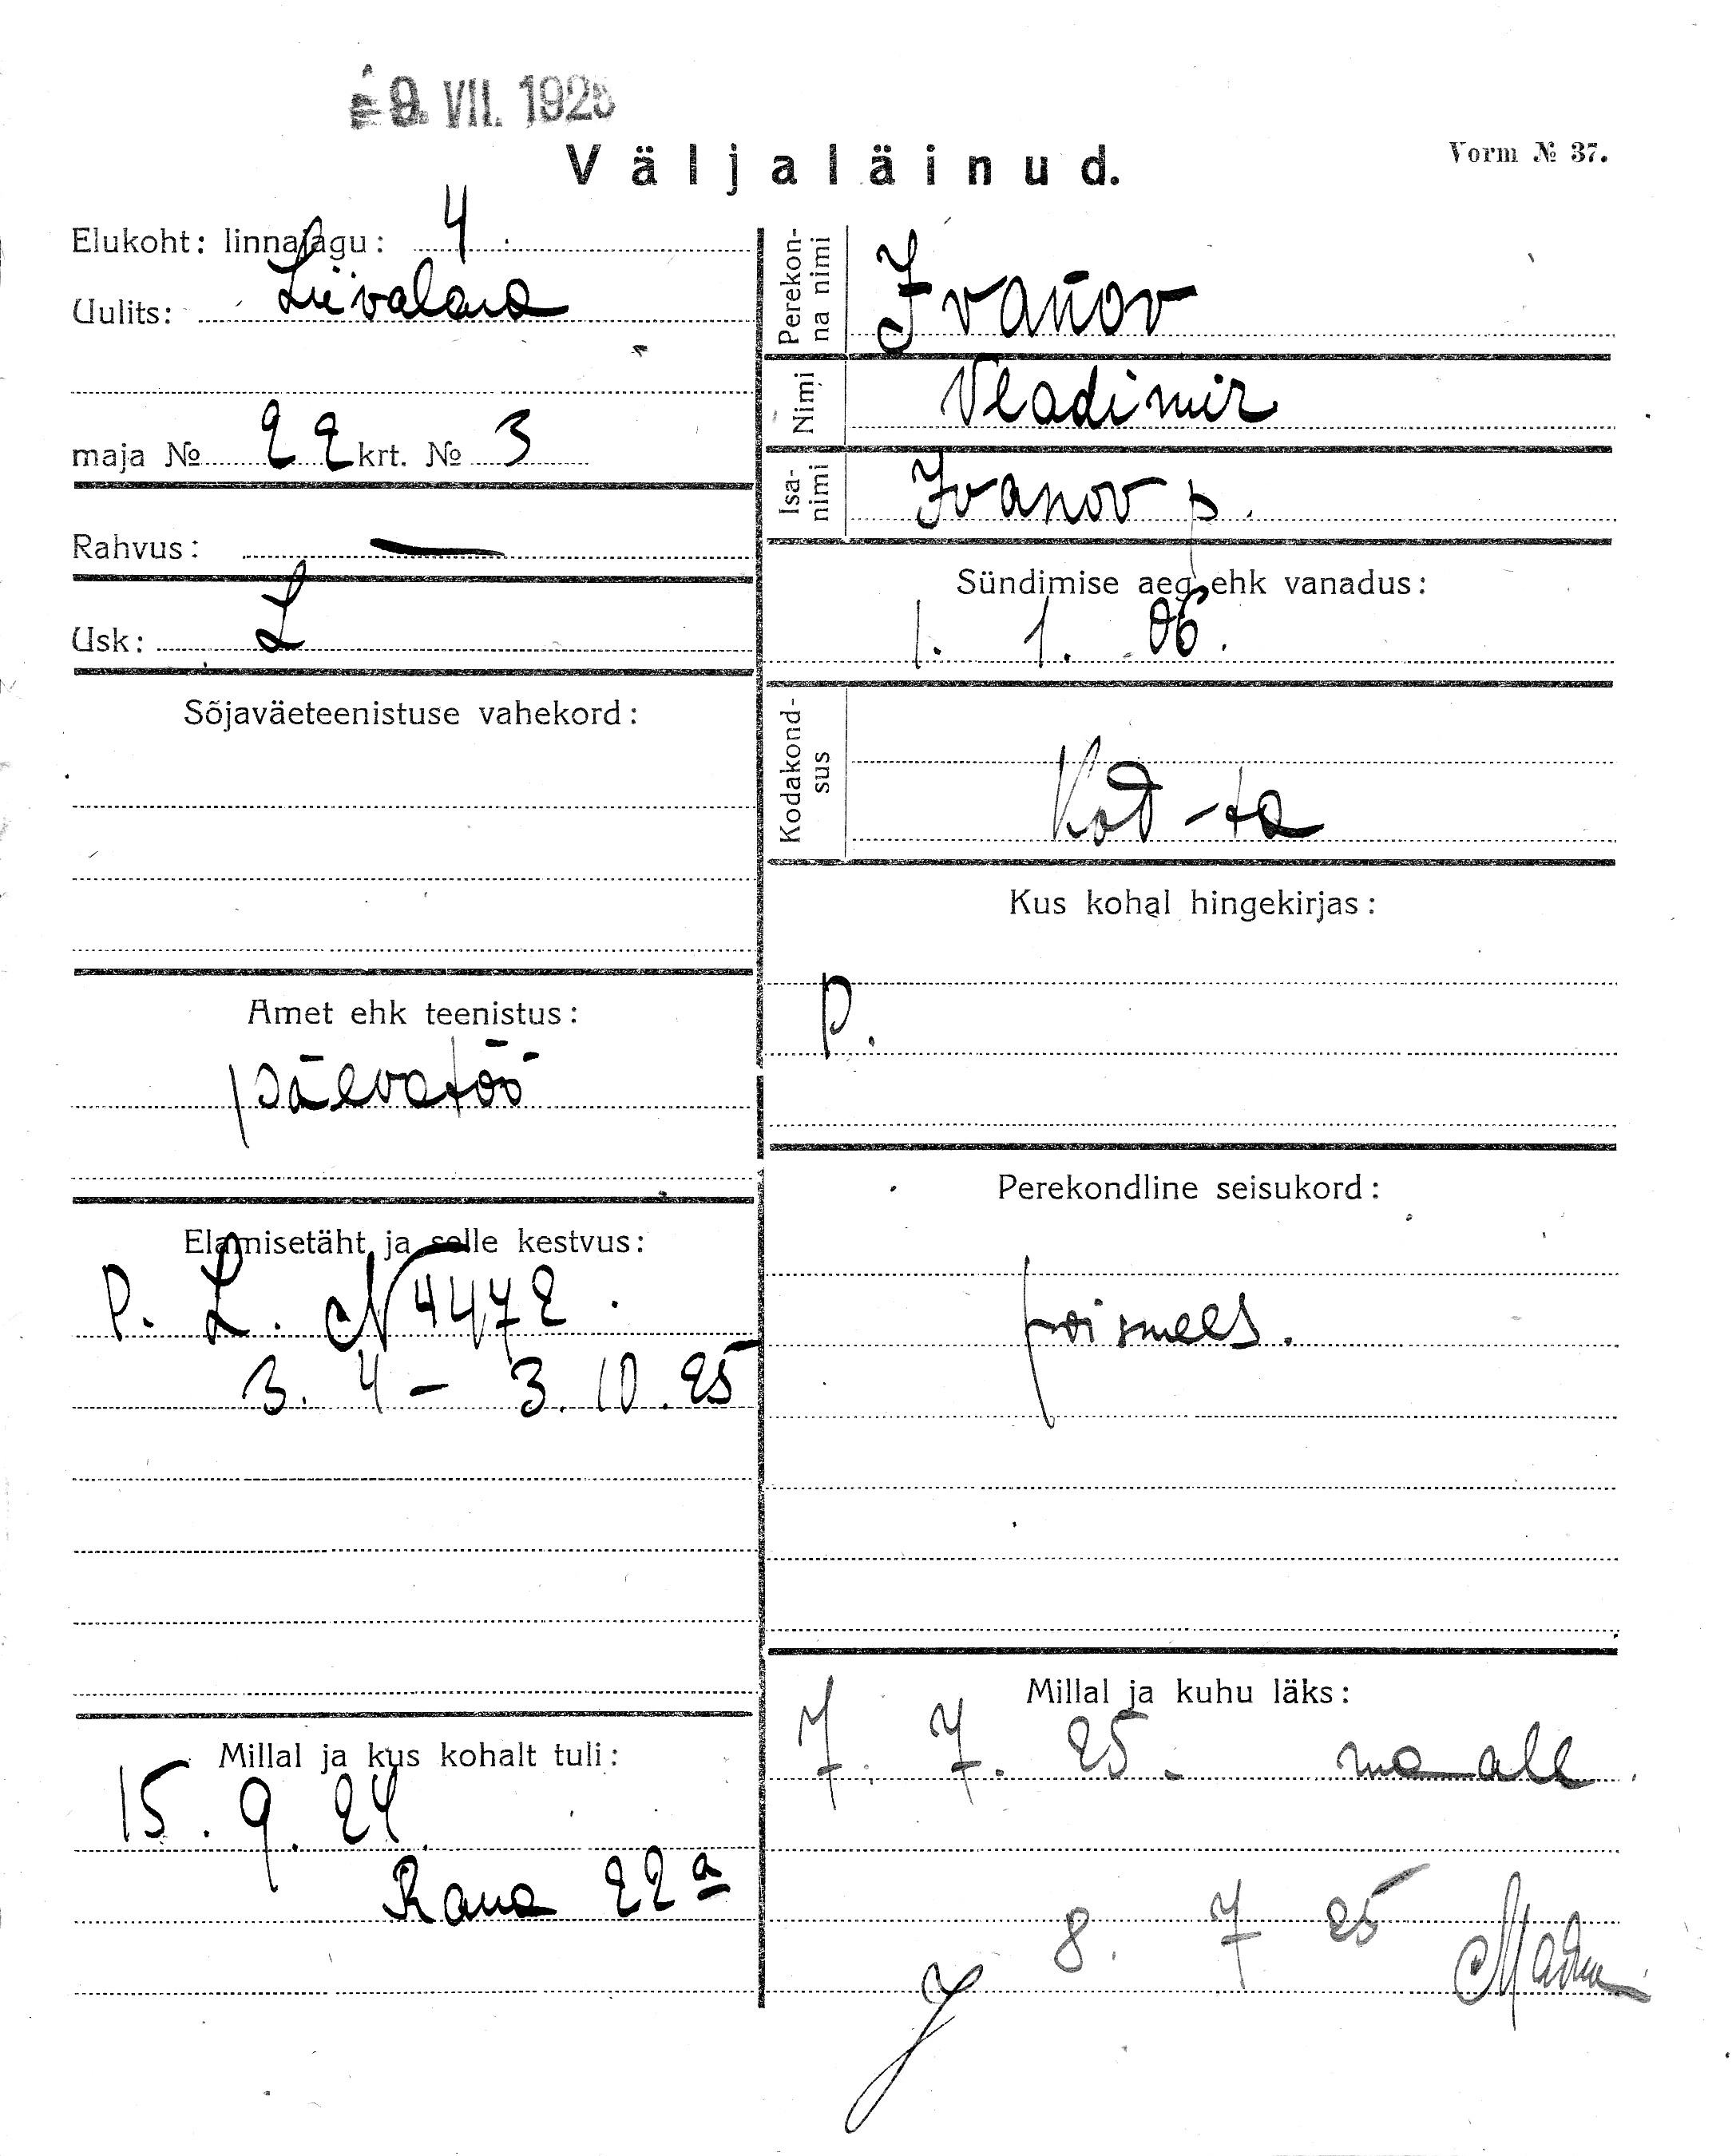 9. VII. 1925
Väljaläinud.
Vorm № 37.
Elukoht: linnajagu: 4
Uulits: Liivalaia
maja № 22 krt. № 3
Rahvus: —
Usk: L
Sõjaväeteenistuse vahekord:
Amet ehk teenistus:
päevatöö
Elamisetäht ja selle kestvus:
P. L. N 4472.
3. 4 – 3. 10. 25
Millal ja kus kohalt tuli:
15. 9. 24.
Raua 22a
Perekon-
na nimi
Ivanov
Nimi
Vladimir
Isa-
nimi
Ivanov p.
Sündimise aeg ehk vanadus:
1. 1. 06.
Kodakond-
sus
Kod-ta
Kus kohal hingekirjas:
P.
Perekondline seisukord:
poismees.
Millal ja kuhu läks:
7. 7. 25. maale.
8. 7 25